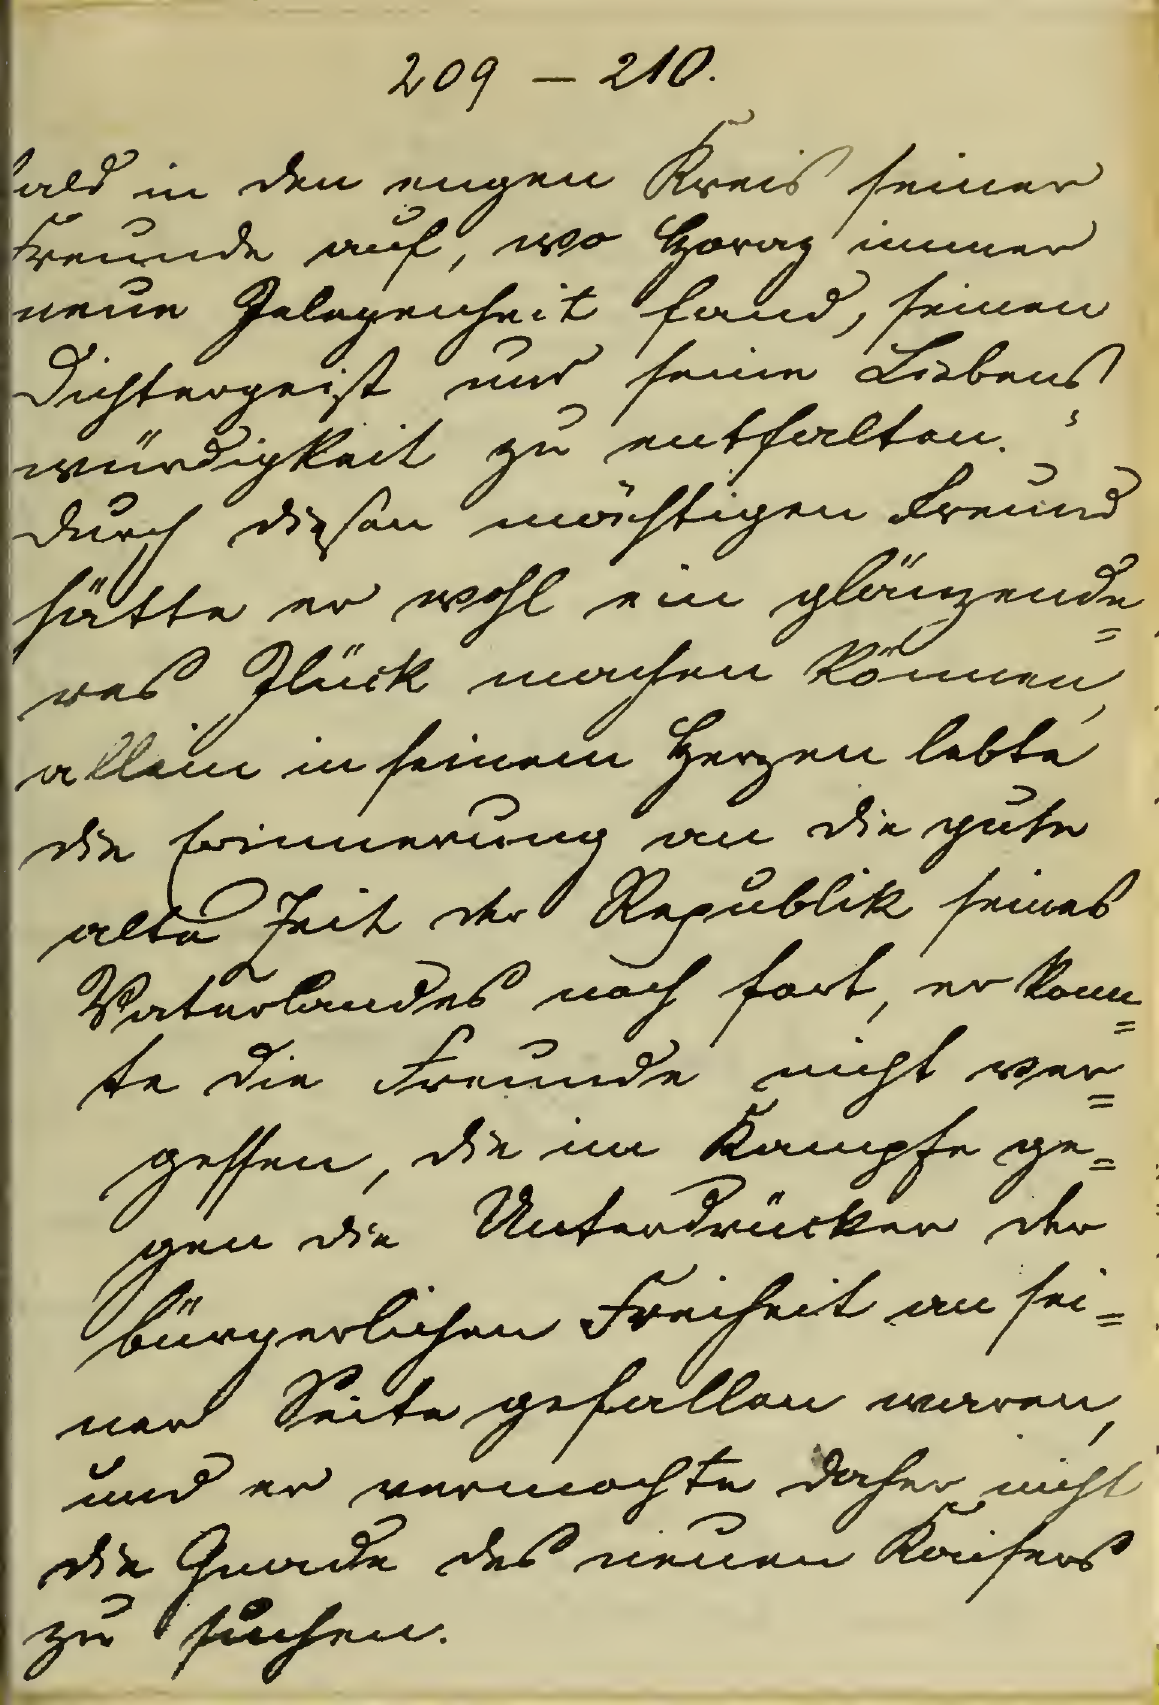 209 – 210.
bald in den engen Kreis seiner
Freunde auf, wo Horaz immer
neue Gelegenheit fand, seinen
Dichtergeist und seine Liebens
würdigkeit zu entfalten.
Durch diesen mächtigen Freund
hätte er wohl ein glänzende=
res Glück machen können,
allein in seinem Herzen lebte
die Erinnerung an die gute
alte Zeit der Republik seines
Vaterlandes noch fort, er konn=
te die Freunde nicht ver=
gessen, die im Kampfe ge=
gen die Unterdrücker der
bürgerlichen Freiheit an sei=
ner Seite gefallen waren,
und er vermochte daher nicht
die Gnade des neuen Kaisers
zu suchen.